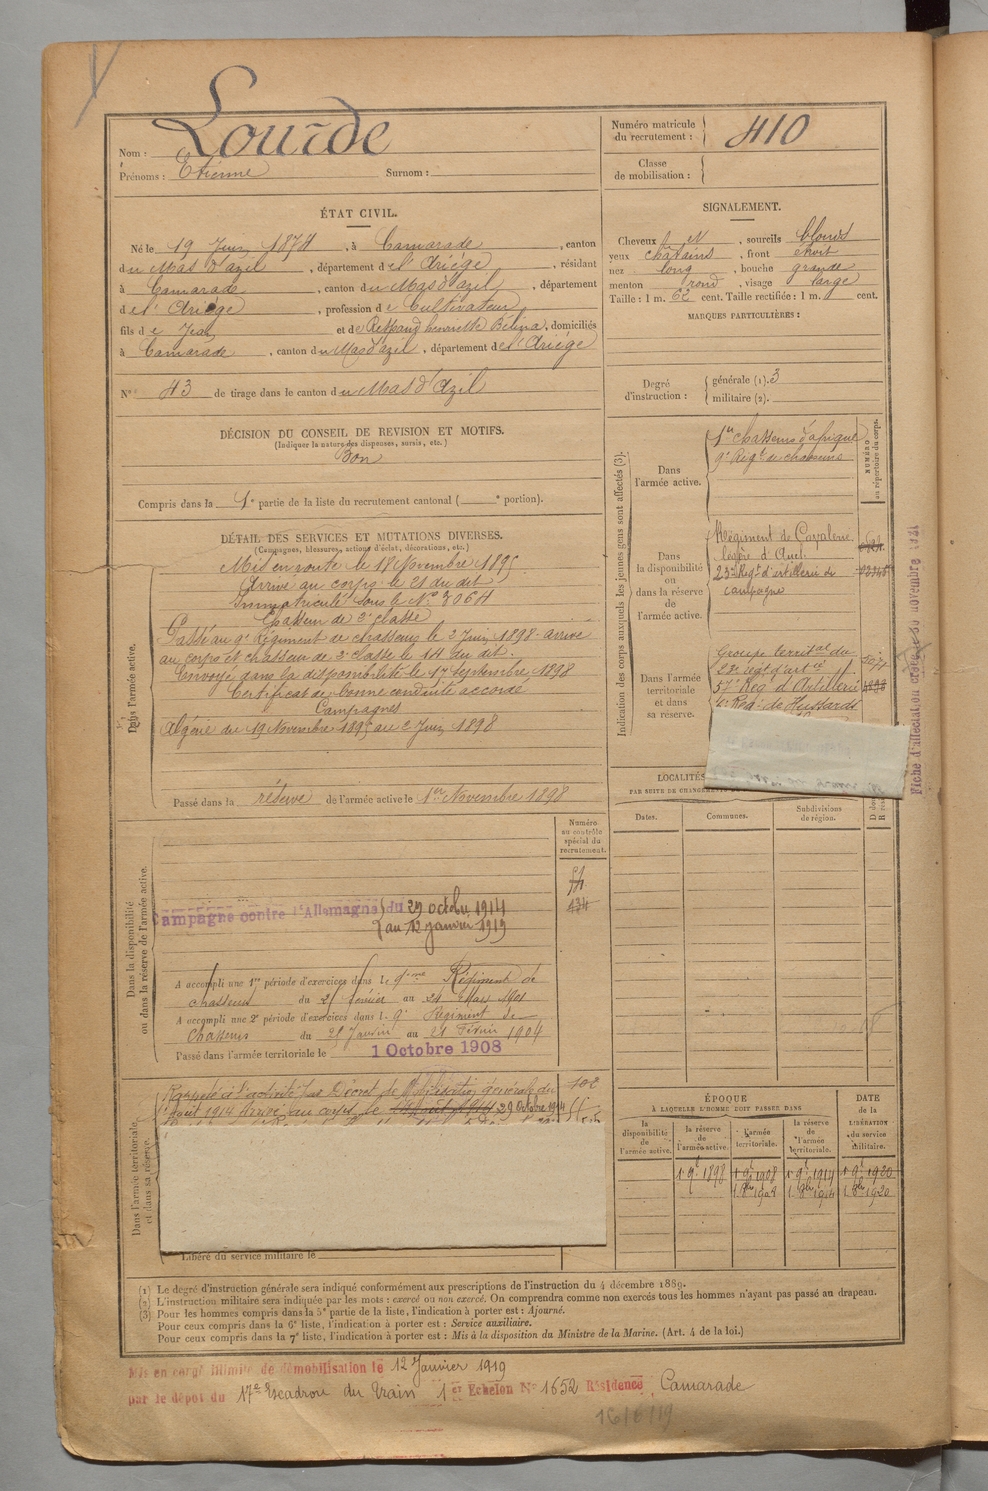 Nom : Lourde
Prénoms : Etienne Surnom :
Numéro matricule du recrutement : 410
Classe de mobilisation :
ÉTAT CIVIL.
Né le 19 Juin 1874, à Camarade, canton
du Mas d'azil, département de l'Ariège, résidant
à Camarade, canton du Mas d'azil, département
de l'Ariège, profession de Cultivateur
fils de Jean et de Respaud henriette Bélina, domiciliés
à Camarade, canton du Mas d'azil, département de l'Ariège
N° 43 de tirage dans le canton du Mas d'Azil
DÉCISION DU CONSEIL DE REVISION ET MOTIFS.
(Indiquer la nature des dispenses, sursis, etc.)
Bon
Compris dans la 1e partie de la liste du recrutement cantonal ( e portion).
SIGNALEMENT.
Cheveux et N, sourcils blonds
yeux chatains, front étroit
nez long, bouche grande
menton rond, visage large
Taille : 1 m. 62 cent. Taille rectifiée : 1 m. cent.
MARQUES PARTICULIÈRES :
Degré d'instruction : générale (1). 3
militaire (2).
DÉTAIL DES SERVICES ET MUTATIONS DIVERSES.
(Campagnes, blessures, actions d'éclat, décorations, etc.)
Dans l'armée active.
Mis en route le 18 Novembre 1895
Arrivé au corps le 21 du dit
Immatriculé sous le N° 3064
Chasseur de 2e classe
Passé au 9e Régiment de chasseurs le 2 Juin 1898 - arrivé
au corps et chasseur de 2e classe le 14 du dit.
Envoyé dans la disponibilité le 17 septembre 1898
Certificat de bonne conduite accordé
Campagnes
Algérie du 19 Novembre 1895 au 2 Juin 1898
Passé dans la réserve de l'armée active le 1er Novembre 1898
Indication des corps auxquels les jeunes gens sont affectés (3).
NUMÉRO au répertoire du corps.
Dans l'armée active.
1er chasseurs d'afrique
9e Régt de chasseurs
Dans la disponibilité ou dans la réserve de l'armée active.
Régiment de Cavalerie
légère d'Auch
23e Regt d'artillerie de
campagne
Dans l'armée territoriale et dans sa réserve.
Groupe territal du
23e regt d'artie
57e Reg d'Artillerie
Reg. de Hussards
Fiche d'affectation créée le 30 novembre 1921
LOCALITÉS
Dates. Communes. Subdivisions de région.
Dans la disponibilité ou dans la réserve de l'armée active.
Numéro au contrôle spécial du recrutement.
Campagne contre l'Allemagne du 29 octobre 1914
au 12 janvier 1919
A accompli une 1re période d'exercices dans le 9ème Régiment de
chasseurs du 25 Février au 24 Mars 1901
A accompli une 2e période d'exercices dans le 9e Régiment de
Chasseurs du 25 Janvier au 21 Février 1904
Passé dans l'armée territoriale le 1 Octobre 1908
Dans l'armée territoriale et dans sa réserve.
Rappelé à l'activité par Décret de Mobilisation générale du
1er août 1914 Arrivé au corps le 29 Octobre 1914
Libéré du service militaire le
ÉPOQUE
À LAQUELLE L'HOMME DOIT PASSER DANS
la disponibilité de l'armée active.
la réserve de l'armée active.
l'armée territoriale.
la réserve de l'armée territoriale.
DATE de la LIBÉRATION du service militaire.
1 9e 1898 1 9e 1908 1 9e 1914 1 9e 1920
1 8bre 1908 1 8bre 1914 1 8bre 1920
(1) Le degré d'instruction générale sera indiqué conformément aux prescriptions de l'instruction du 4 décembre 1889.
(2) L'instruction militaire sera indiquée par les mots : exercé ou non exercé. On comprendra comme non exercés tous les hommes n'ayant pas passé au drapeau.
(3) Pour les hommes compris dans la 5e partie de la liste, l'indication à porter est : Ajourné.
Pour ceux compris dans la 6e liste, l'indication à porter est : Service auxiliaire.
Pour ceux compris dans la 7e liste, l'indication à porter est : Mis à la disposition du Ministre de la Marine. (Art. 4 de la loi.)
Mis en congé illimité de démobilisation le 12 Janvier 1919
par le dépôt du 17e Escadron du Train 1er Echelon N° 1652 Résidence Camarade
16/6/19